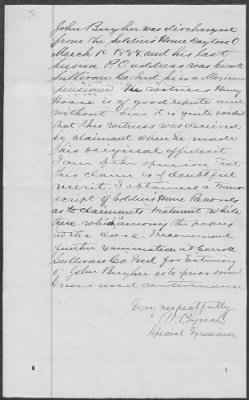 John Burgher was discharged
from the Soldiers Home Dayton O
March 1st 1888 and his last
known P.O. address was Carroll
Sullivan Co Ind, he is a Mexican
pensioner. The witness Henry
House is of good repute and
without bias it is quite evident
that this witness was deceived
by claimant when he made
his original affidavit
I am of the opinion that
this claim is of doubtful
merit. I obtained a trans
script of Soldiers Home Records
as to claimants treatment while
here, which accompany the papers
in the case. I recommend
further examination at Carroll
Sullivan Co Ind for testimony
of John Burgher as to prior sound
ness and continuance
Very respectfully
W. P. Lynch
Special Examiner